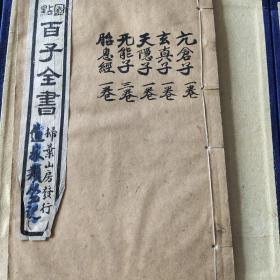 亢倉子一卷
玄真子一卷
天隱子一卷
无能子三卷
胎息經一卷
圈點
百子全書
掃葉山房發行